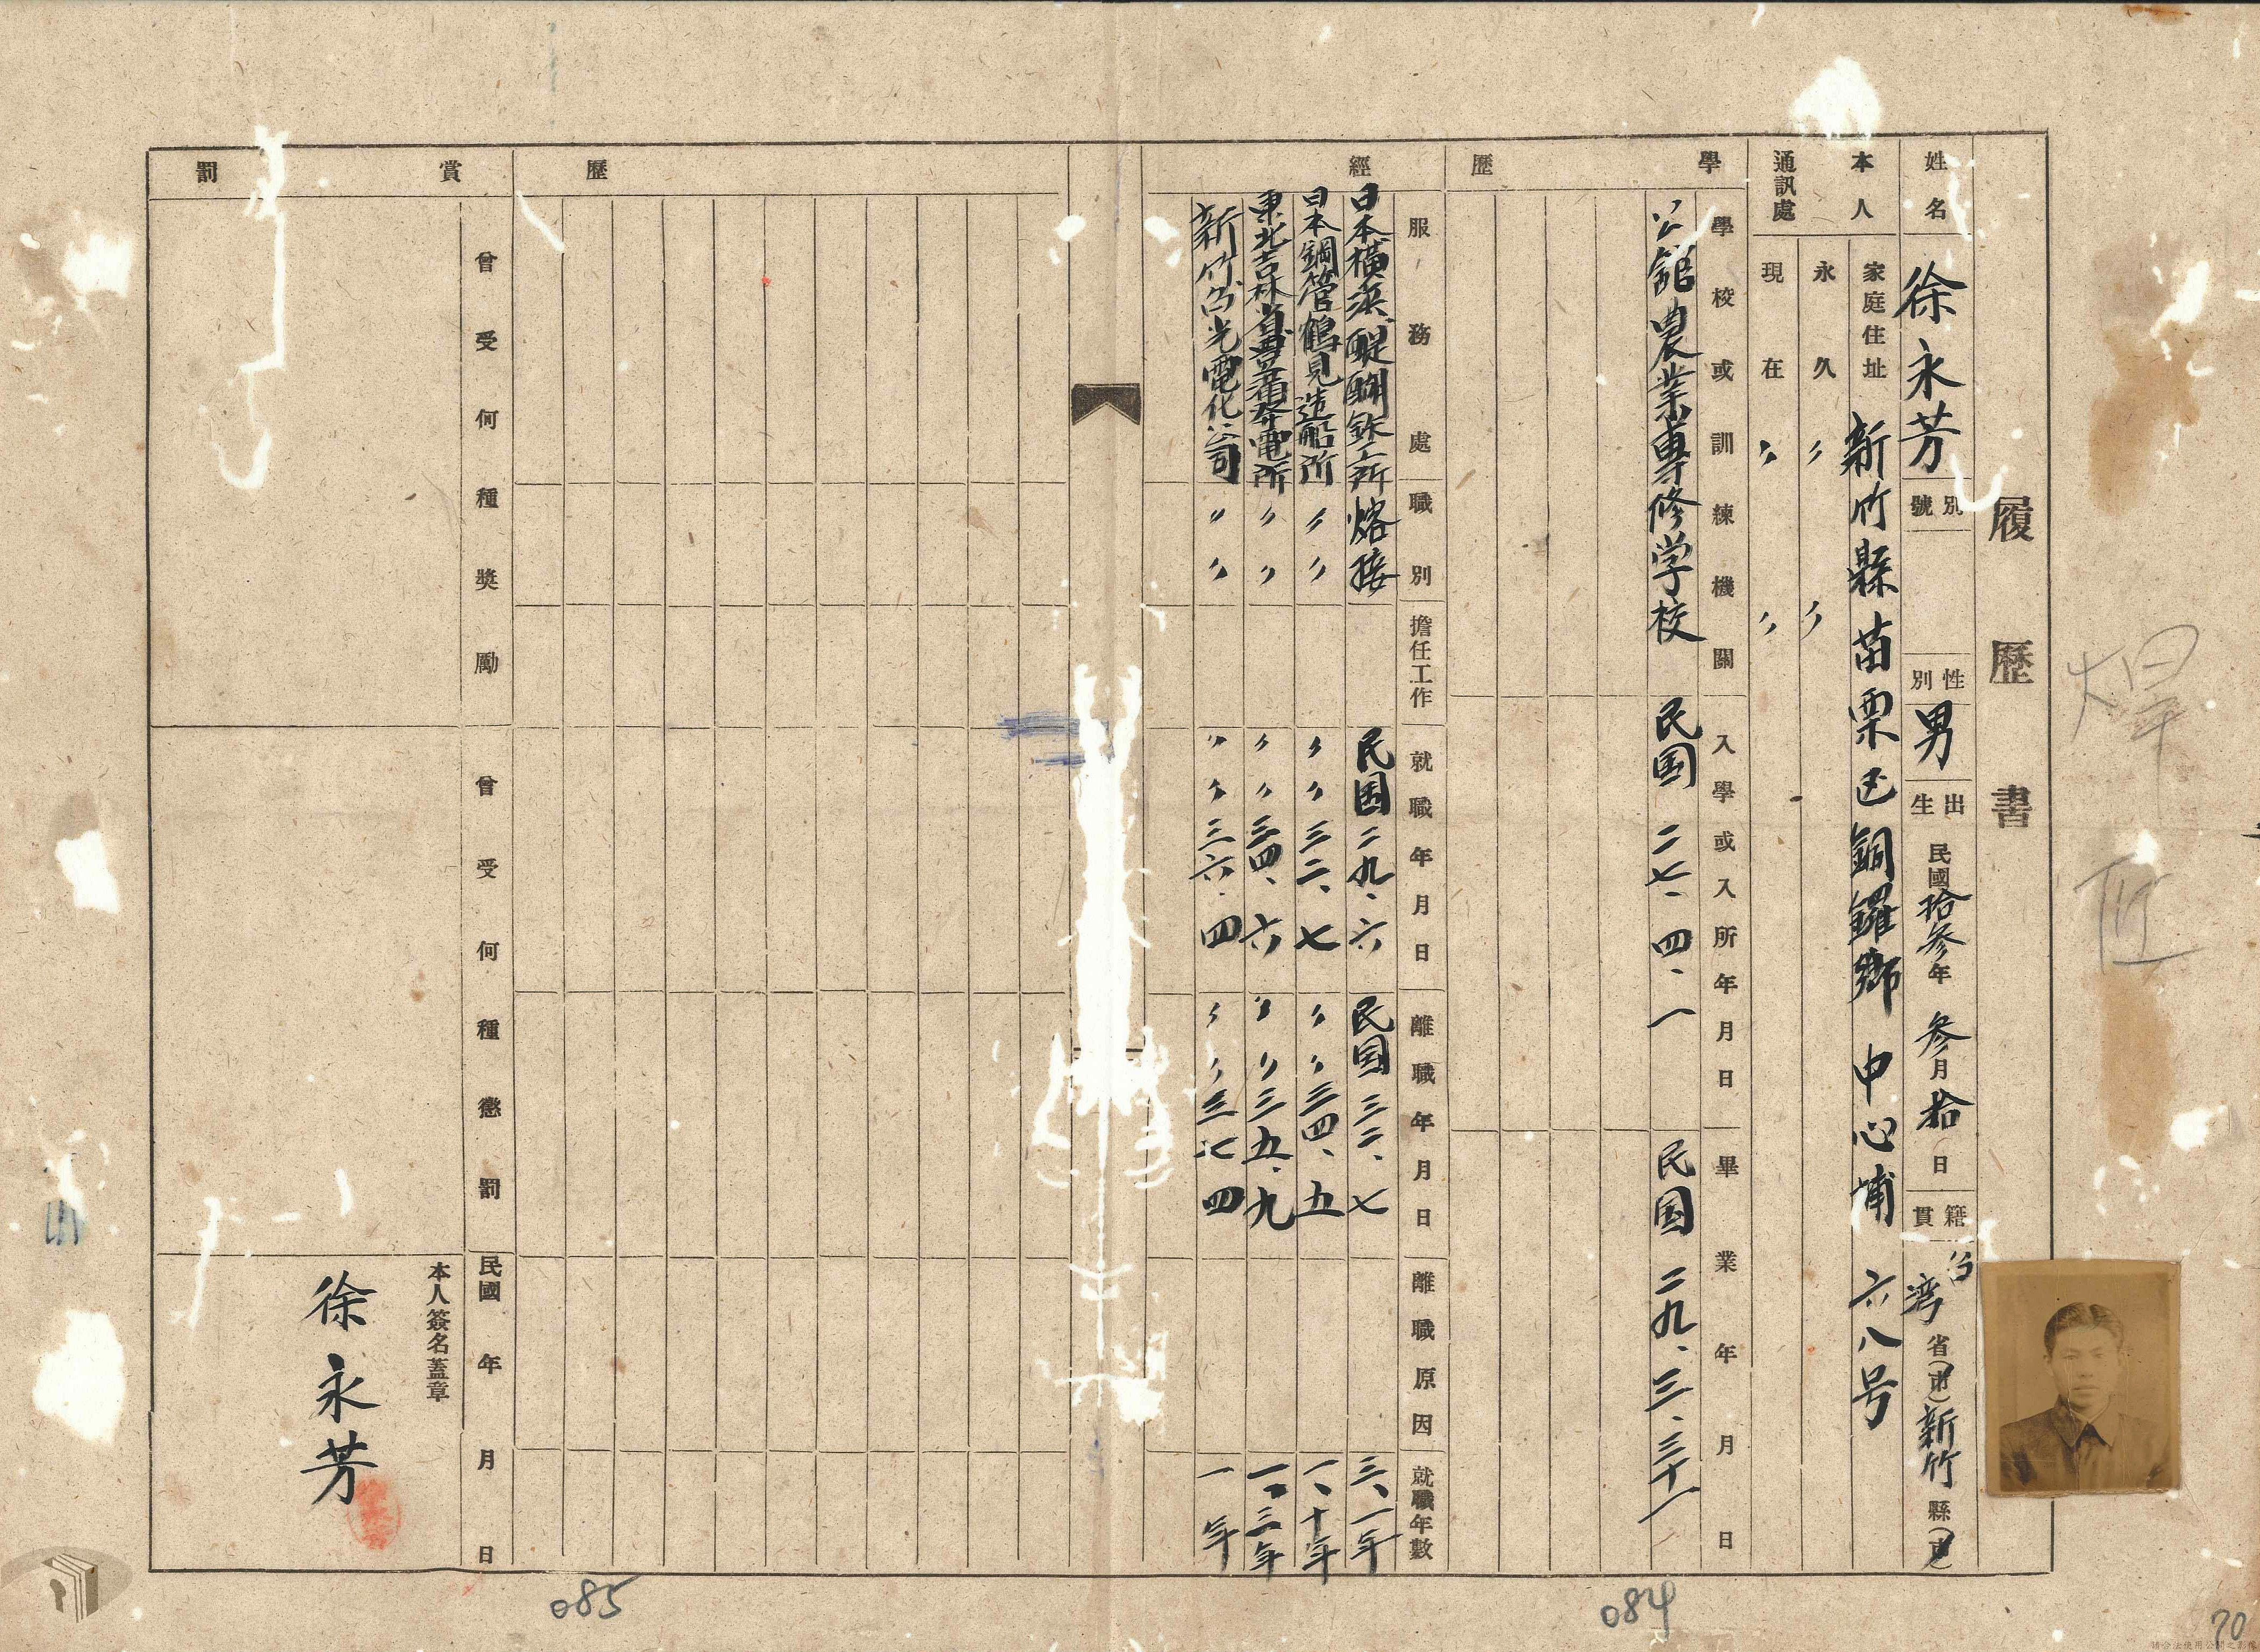 履歷書
姓名 徐永芳 別號 性別 男 出生 民國拾參年參月拾日 籍貫 台湾省(市)新竹縣(市)
本人 家庭住址 新竹縣苗栗区銅鑼鄉中心埔六八号
通訊處 永久 〃 〃
現在 〃 〃
學歷 學校或訓練機關 入學或入所年月日 畢業年月日
公館農業專修学校 民国二七、四、一 民国二九、三、三十一
經歷 服務處 職別 擔任工作 就職年月日 離職年月日 離職原因 就職年數
日本橫浜醍醐鉄工所 熔接 民国二九、六 民国三二、七 三、一年
日本鋼管鶴見造船所 〃 〃 〃 〃 三二、七 〃 〃 三四、五 一、十年
東北吉林省豊滿発電所 〃 〃 〃 〃 三四、六 〃 〃 三五、九 一、三年
新竹台光電化公司 〃 〃 〃 〃 三六、四 〃 〃 三七 四 一年
賞罰 曾受何種獎勵 曾受何種懲罰 民國 年 月 日
本人簽名蓋章
徐永芳
焊
085
084
70